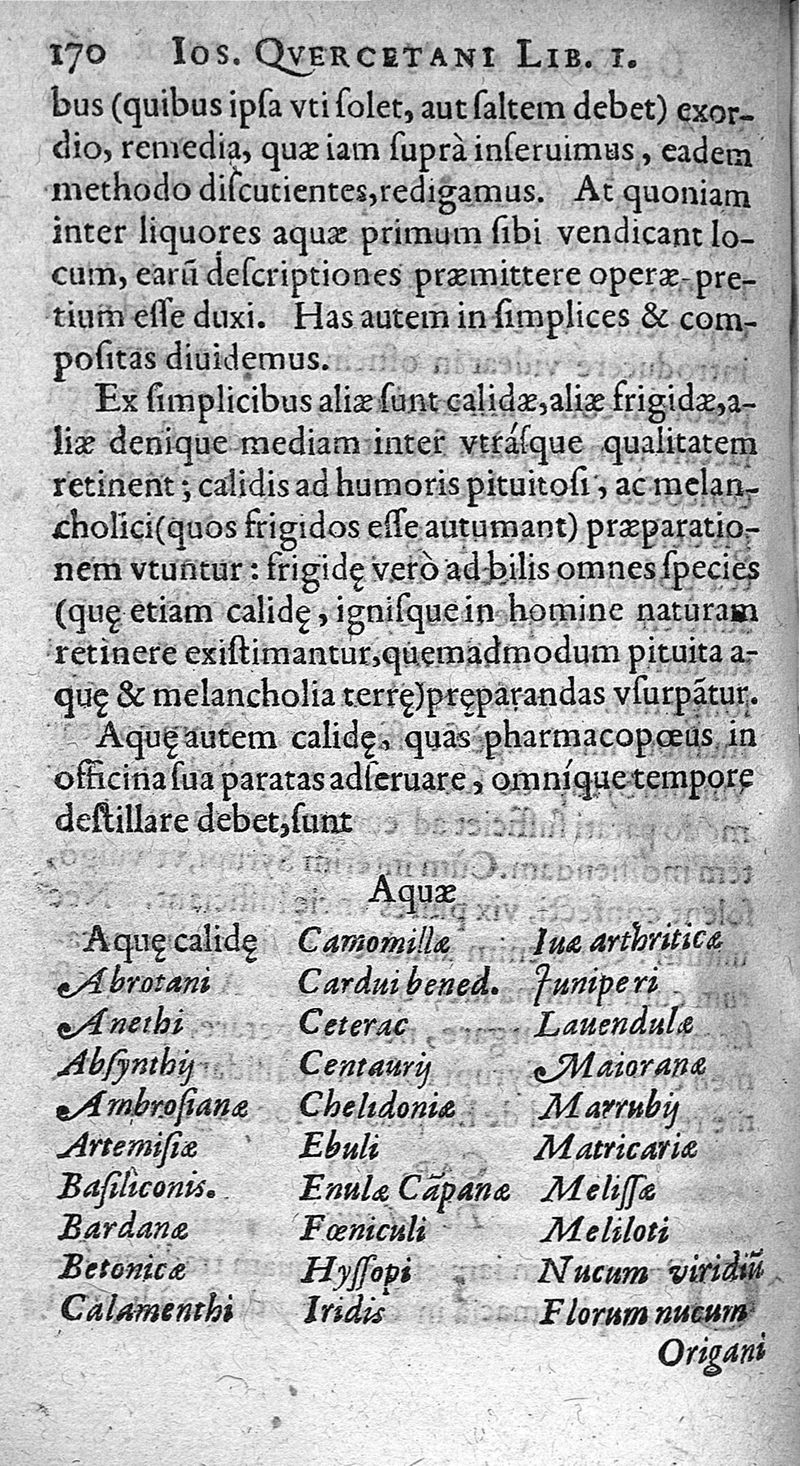 170 IOS. QVERCETANI LIB. I.
bus (quibus ipſa vti ſolet, aut ſaltem debet) exor-
dio, remedia, quæ iam ſuprà inſeruimus, eadem
methodo diſcutientes, redigamus. At quoniam
inter liquores aquæ primum ſibi vendicant lo-
cum, earũ deſcriptiones præmittere operæ-pre-
tium eſſe duxi. Has autem in ſimplices & com-
poſitas diuidemus.
Ex ſimplicibus aliæ ſunt calidæ, aliæ frigidæ, a-
liæ denique mediam inter vtráſque qualitatem
retinent; calidis ad humoris pituitoſi, ac melan-
cholici (quos frigidos eſſe autumant) præparatio-
nem vtuntur: frigidę verò ad bilis omnes ſpecies
(quę etiam calidę, igniſque in homine naturam
retinere exiſtimantur, quemadmodum pituita a-
quę & melancholia terrę) pręparandas vſurpãtur.
Aquę autem calidę, quas pharmacopœus in
officina ſua paratas adſeruare, omníque tempore
deſtillare debet, ſunt
Aquæ
Aquę calidę
Abrotani
Anethi
Abſynthij
Ambroſianæ
Artemiſiæ
Baſiliconis.
Bardanæ
Betonicæ
Calamenthi
Camomillæ
Cardui bened.
Ceterac
Centaurij
Chelidoniæ
Ebuli
Enulæ Cãpanæ
Fœniculi
Hyſſopi
Iridis
Iuæ arthriticæ
Juniperi
Lauendulæ
Maioranæ
Marrubij
Matricariæ
Meliſſæ
Meliloti
Nucum viridiũ
Florum nucum
Origani